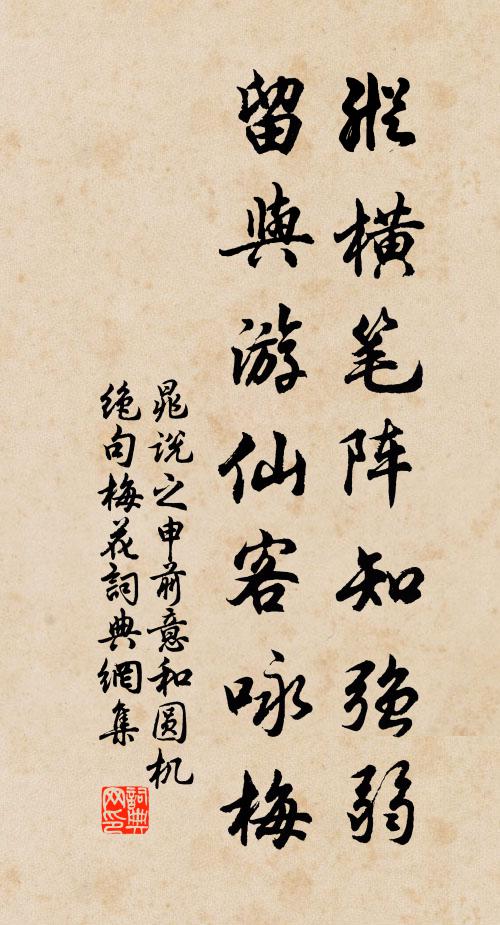 縱橫笔阵知強弱
留與游仙客咏梅
晁说之申前意和圆机
绝句梅花詞典網集
詞典
网印